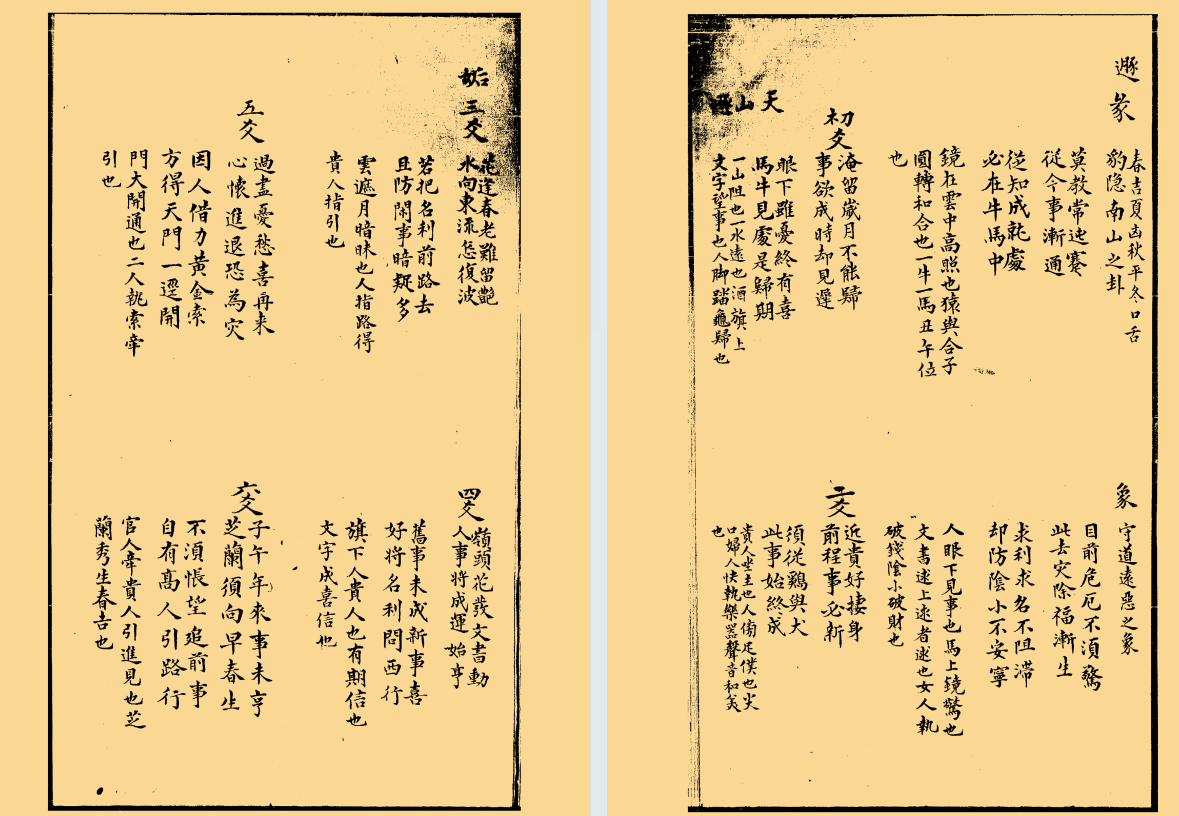 遯彖
春吉夏凶秋平冬口舌
豹隐南山之卦
莫教常迍蹇
從今事漸通
從知成就處
必在牛馬中
鏡在雲中高照也猿與合子
圓轉和合也一牛一馬丑午位
也
初爻
淹留嵗月不能歸
事欲成時却見遲
眼下雖憂終有喜
馬牛見處是歸期
一山阻也一水遠也酒旗上
文字望事也人脚踏龜歸也
天山遯
象
守道遠惡之象
目前危厄不湏驚
此去灾除福漸生
求利求名不阻滯
却防陰小不安寧
人眼下見事也馬上鏡驚也
文書逑上逑者逑也女人執
破錢陰小破財也
二爻
近貴好棲身
前程事必新
須從鷄與犬
此事始終成
貴人坐主也人傍足僕也火
口婦人快執樂噐聲音和美
也
姤三爻
花逢春老難留艷
水向東流怎復波
若把名利前路去
且防閑事暗疑多
雲遮月暗昧也人指路得
貴人指引也
四爻
嶺頭花發文書動
人事將成運始亨
舊事未成新事喜
好將名利問西行
旗下人貴人也有期信也
文字成喜信也
五爻
過盡憂愁喜再来
心懷進退恐為灾
因人借力黄金索
方得天門一遝開
門大開通也二人執索牽
引也
六爻
子午年來事未亨
芝蘭須向早春生
不湏悵望追前事
自有髙人引路行
官人牽貴人引進見也芝
蘭秀生春吉也